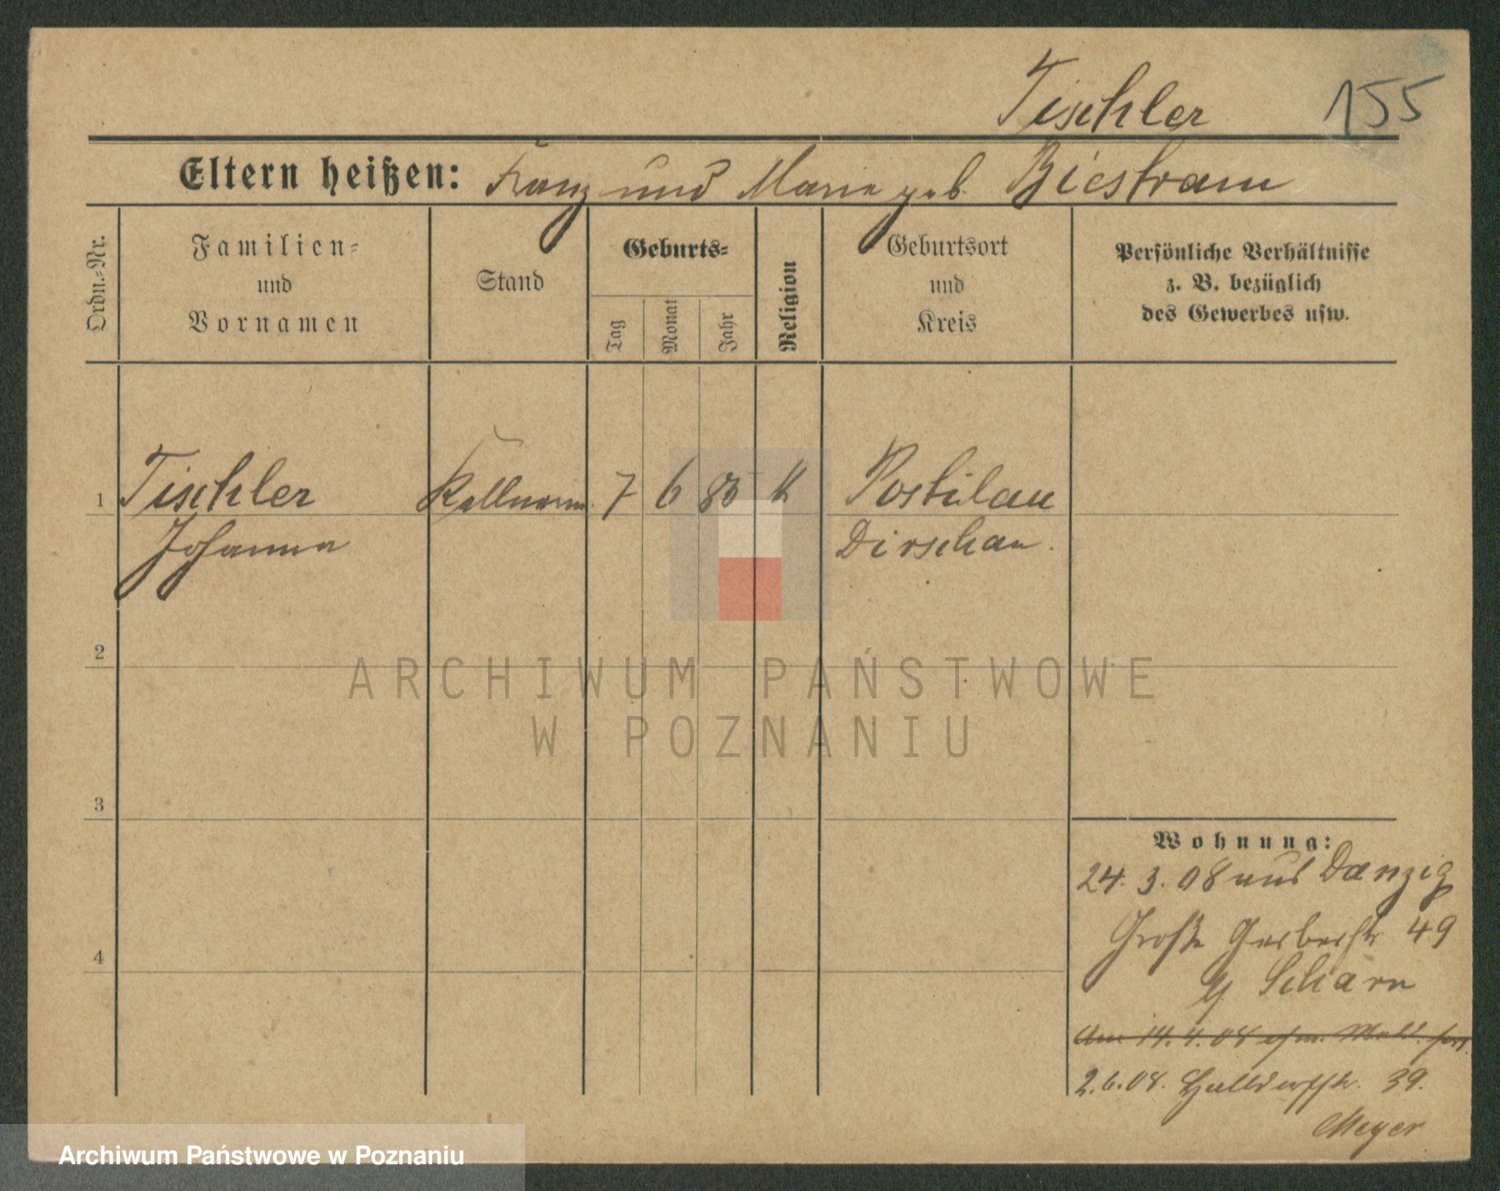 Tischler 155
Eltern heißen: Franz und Marie geb. Biestram
Ordn.-Nr.
Familien-
und
Vornamen
Stand
Geburts-
Tag
Monat
Jahr
Religion
Geburtsort
und
Kreis
Persönliche Verhältnisse
z. B. bezüglich
des Gewerbes usw.
1 Tischler 7 6 86 k Postilau
Johanna Dirschau.
2
3
4
Wohnung:
24. 3. 08 aus Danzig
Große Gerberstr 49
b/ Scharn
Am 14.4.08 ohne Meld. fort
2.6.08. Halldorfstr. 39.
Meyer
ARCHIWUM PAŃSTWOWE
W POZNANIU
Archiwum Państwowe w Poznaniu